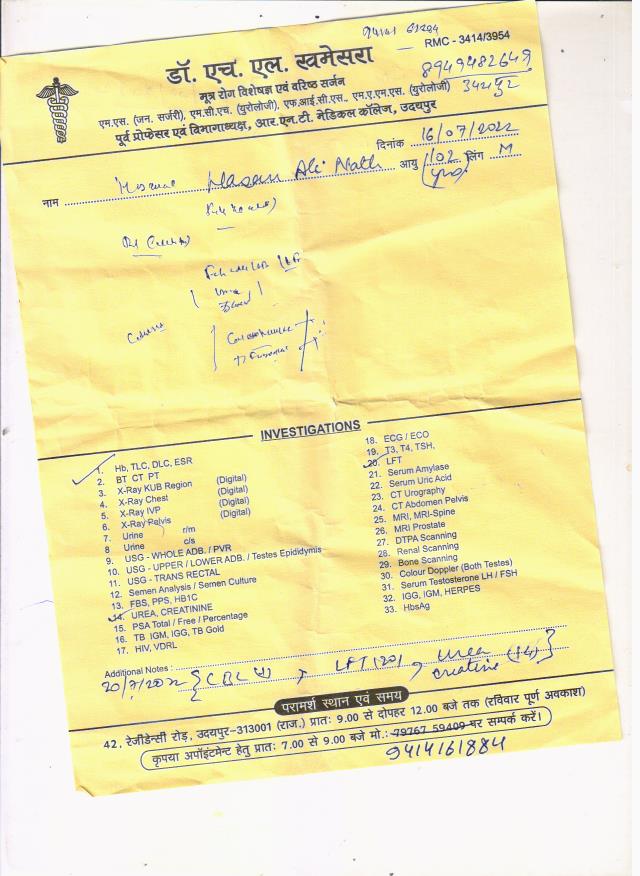 94141 61884
RMC - 3414/3954
डॉ. एच. एल. खमेसरा
8949482649
मूत्र रोग विशेषज्ञ एवं वरिष्ठ सर्जन
उदयपुर
एम.एस. (जन. सर्जरी), एम.सी.एच. (यूरोलोजी), एफ.आई.सी.एस., एम.ए.एम.एस. (यूरोलोजी)
पूर्व प्रोफेसर एवं विभागाध्यक्ष, आर.एन.टी. मेडिकल कॉलेज, उदयपुर
दिनांक 16/07/2022
नाम Hasan Ali Nath आयु 102 लिंग M
INVESTIGATIONS
1. Hb, TLC, DLC, ESR
2. BT CT PT
3. X-Ray KUB Region (Digital)
4. X-Ray Chest (Digital)
5. X-Ray IVP (Digital)
6. X-Ray Pelvis (Digital)
7. Urine r/m
8 Urine c/s
9. USG - WHOLE ADB. / PVR
10. USG - UPPER / LOWER ADB. / Testes Epididymis
11. USG - TRANS RECTAL
12. Semen Analysis / Semen Culture
13. FBS, PPS, HB1C
14. UREA, CREATININE
15. PSA Total / Free / Percentage
16. TB IGM, IGG, TB Gold
17. HIV, VDRL
18. ECG / ECO
19. T3, T4, TSH,
20. LFT
21. Serum Amylase
22. Serum Uric Acid
23. CT Urography
24. CT Abdomen Pelvis
25. MRI, MRI-Spine
26. MRI Prostate
27. DTPA Scanning
28. Renal Scanning
29. Bone Scanning
30. Colour Doppler (Both Testes)
31. Serum Testosterone LH / FSH
32. IGG, IGM, HERPES
33. HbsAg
Additional Notes :
20/7/2022 LFT (20), Urea
creatine (14)
परामर्श स्थान एवं समय
42, रेजीडेन्सी रोड़, उदयपुर-313001 (राज.) प्रातः 9.00 से दोपहर 12.00 बजे तक (रविवार पूर्ण अवकाश)
कृपया अपॉइंटमेन्ट हेतु प्रातः 7.00 से 9.00 बजे मो.: 79767 59409 पर सम्पर्क करें।
9414161884